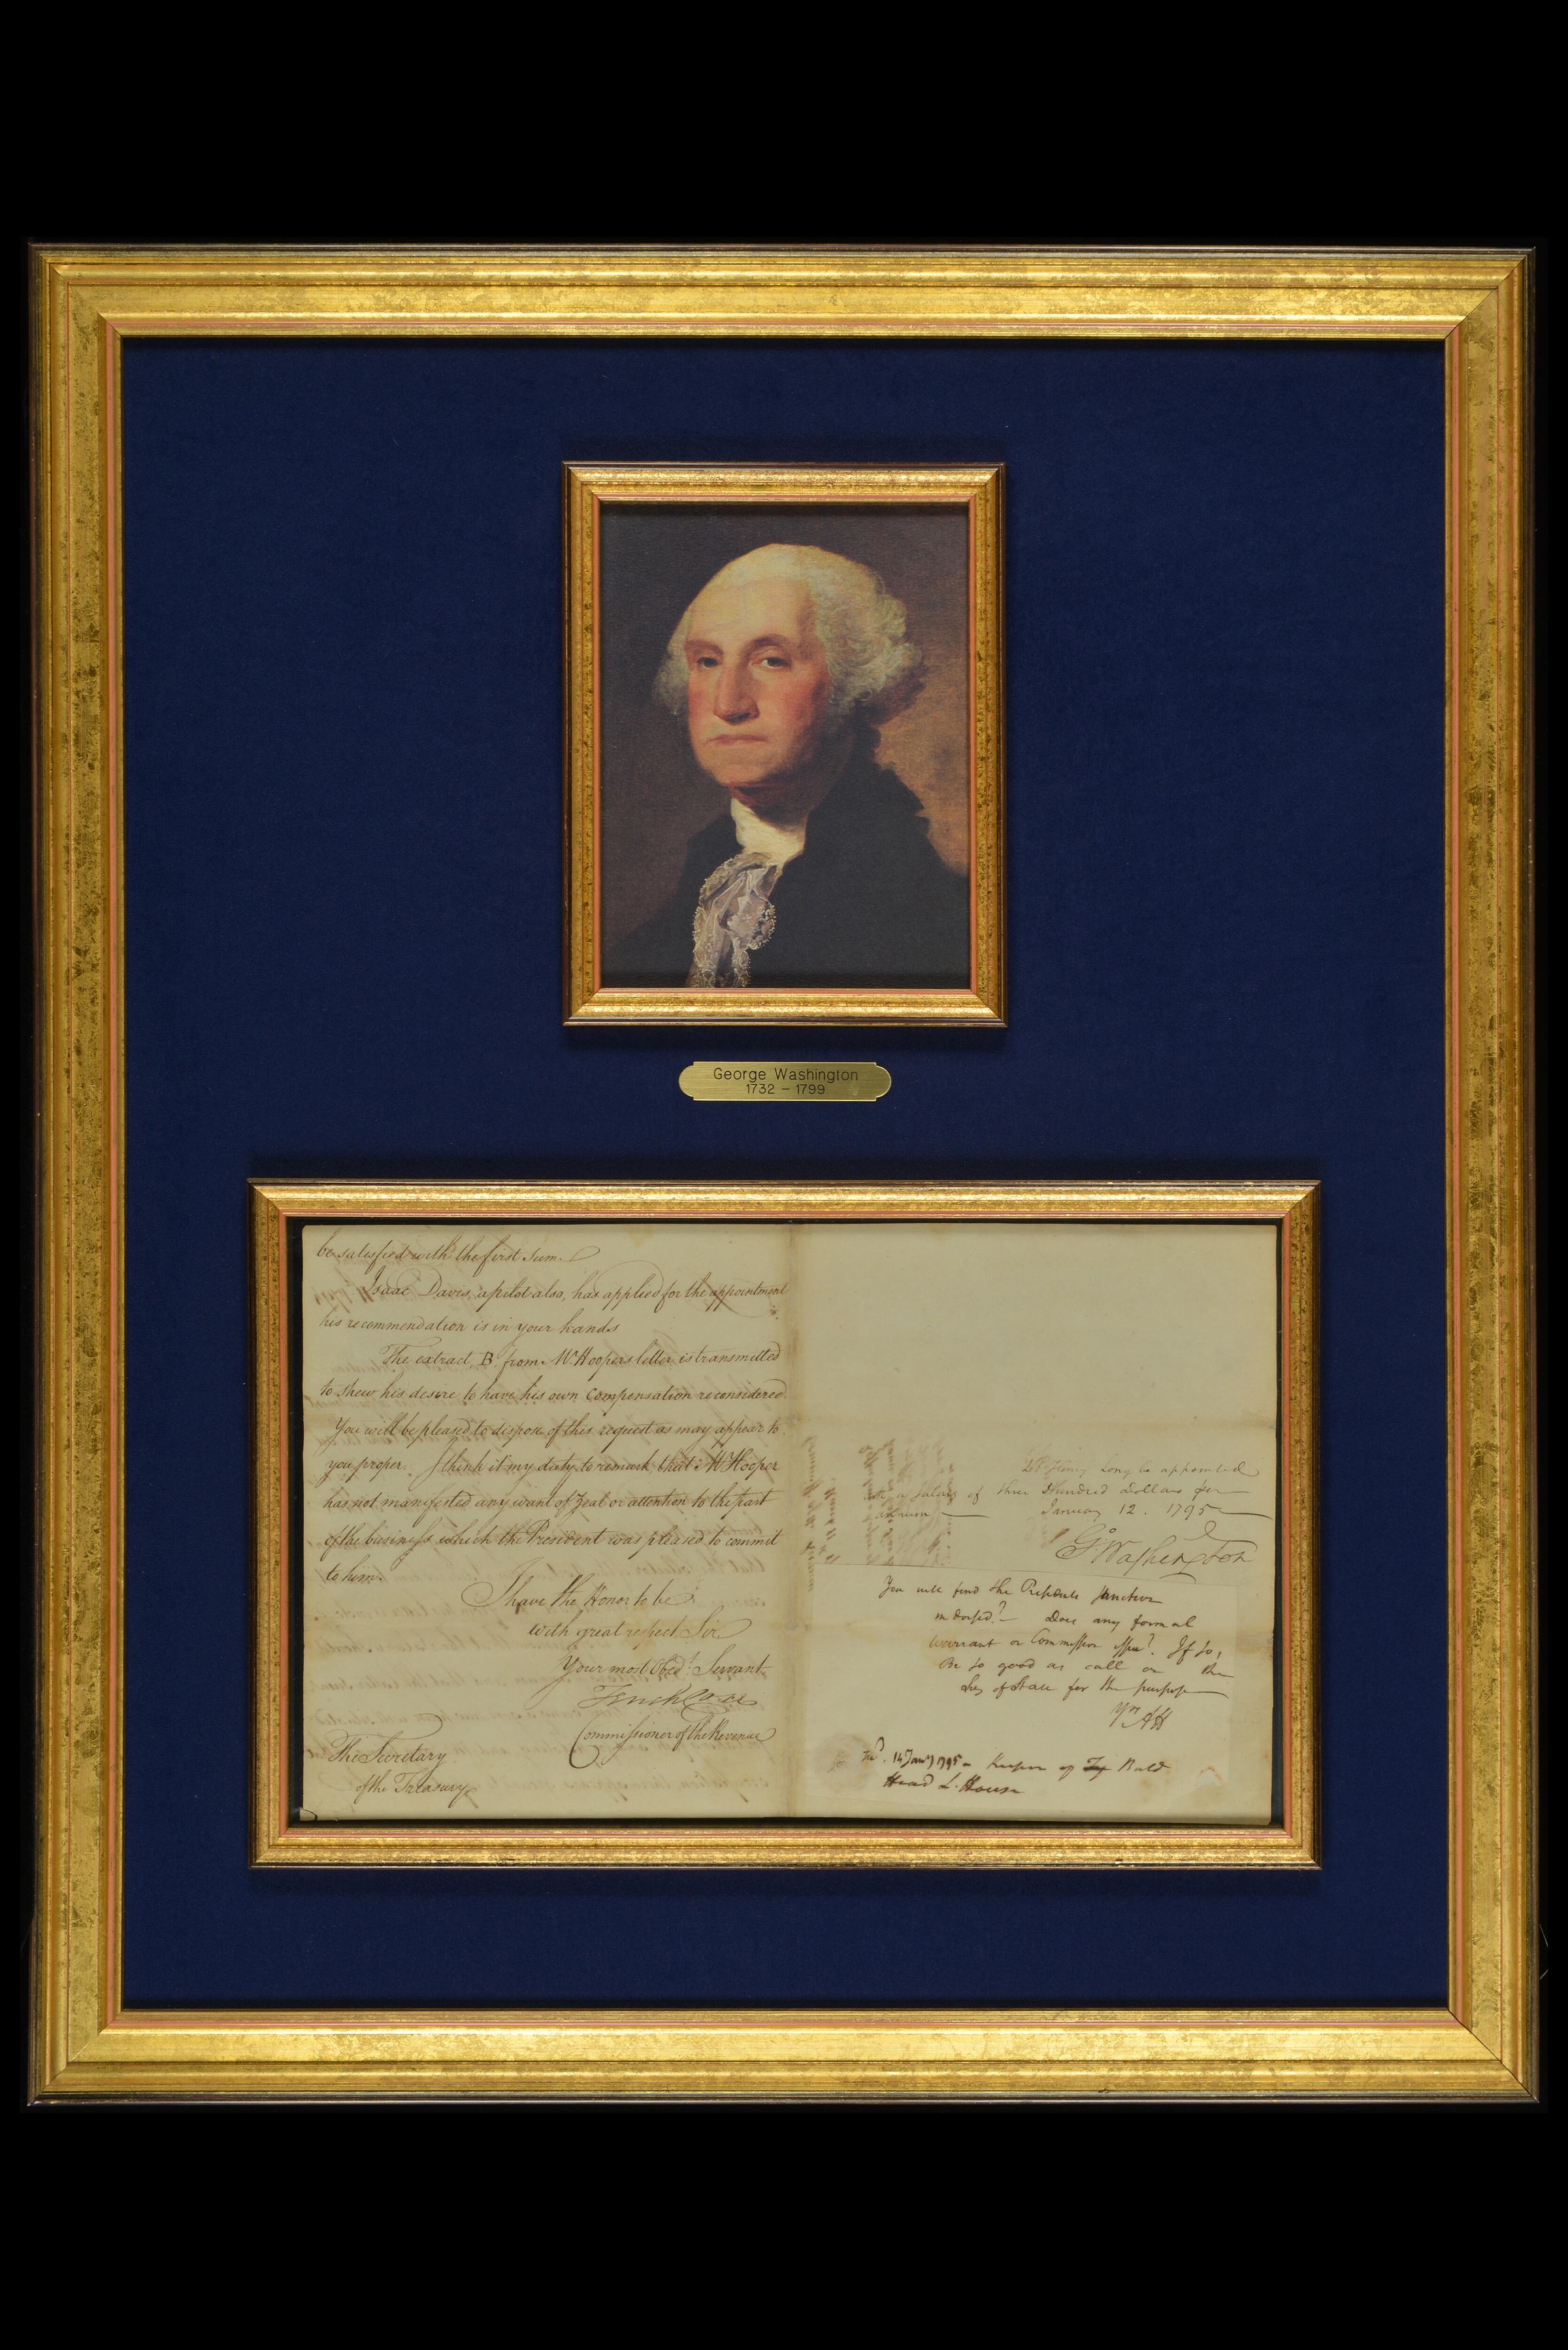 George Washington
1732 – 1799
be satisfied with the first sum.
Isaac Davis, a pilot also, has applied for the appointment
his recommendation is in your hands
The extract, B. from Mr. Hoopers letter is transmitted
to shew his desire to have his own compensation reconsidered
You will be pleased to dispose of this request as may appear to
you proper. I think it my duty to remark that Mr Hooper
has not manifested any want of Zeal or attention to the part
of the business which the President was pleased to commit
to him.
I have the Honor to be
with great respect Sir
Your most Obedt. Servant
Tench Coxe
Commissioner of the Revenue
The Secretary
of the Treasury
Let Henry Long be appointed
with a salary of three Hundred Dollars per
annum — January 12. 1795 —
Go. Washington
You will find the Presidents sanction
indorsed. — Does any formal
warrant or Commission issue? If so,
Be so good as call on the
Secy of State for the purpose
Yrs AH
14 Jany 1795 — Keeper of Bald
Head L. House